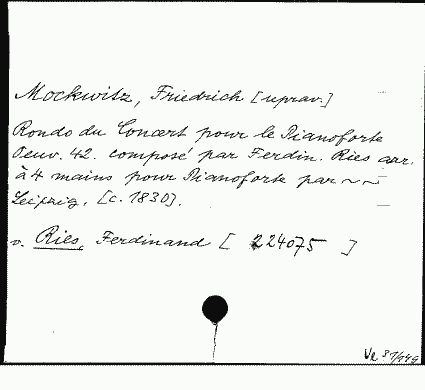 Mockwitz, Friedrich [uprav.]
Rondo du Concert pour le Pianoforte
Oeuv. 42. composé par Ferdin. Ries arr.
à 4 mains pour Pianoforte par ~~
Leipzig, [c. 1830].
v. Ries, Ferdinand [ 224075 ]